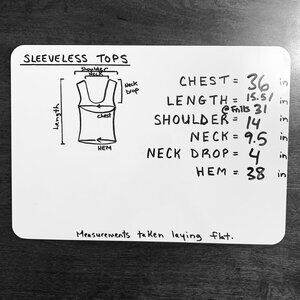 SLEEVELESS TOPS
Shoulder
Neck
Neck
Drop
Length
chest
HEM
CHEST = 36 in
LENGTH = 15.5/ in
@ Frills 31
SHOULDER = 14 in
NECK = 9.5 in
NECK DROP = 4 in
HEM = 38 in
Measurements taken laying flat.